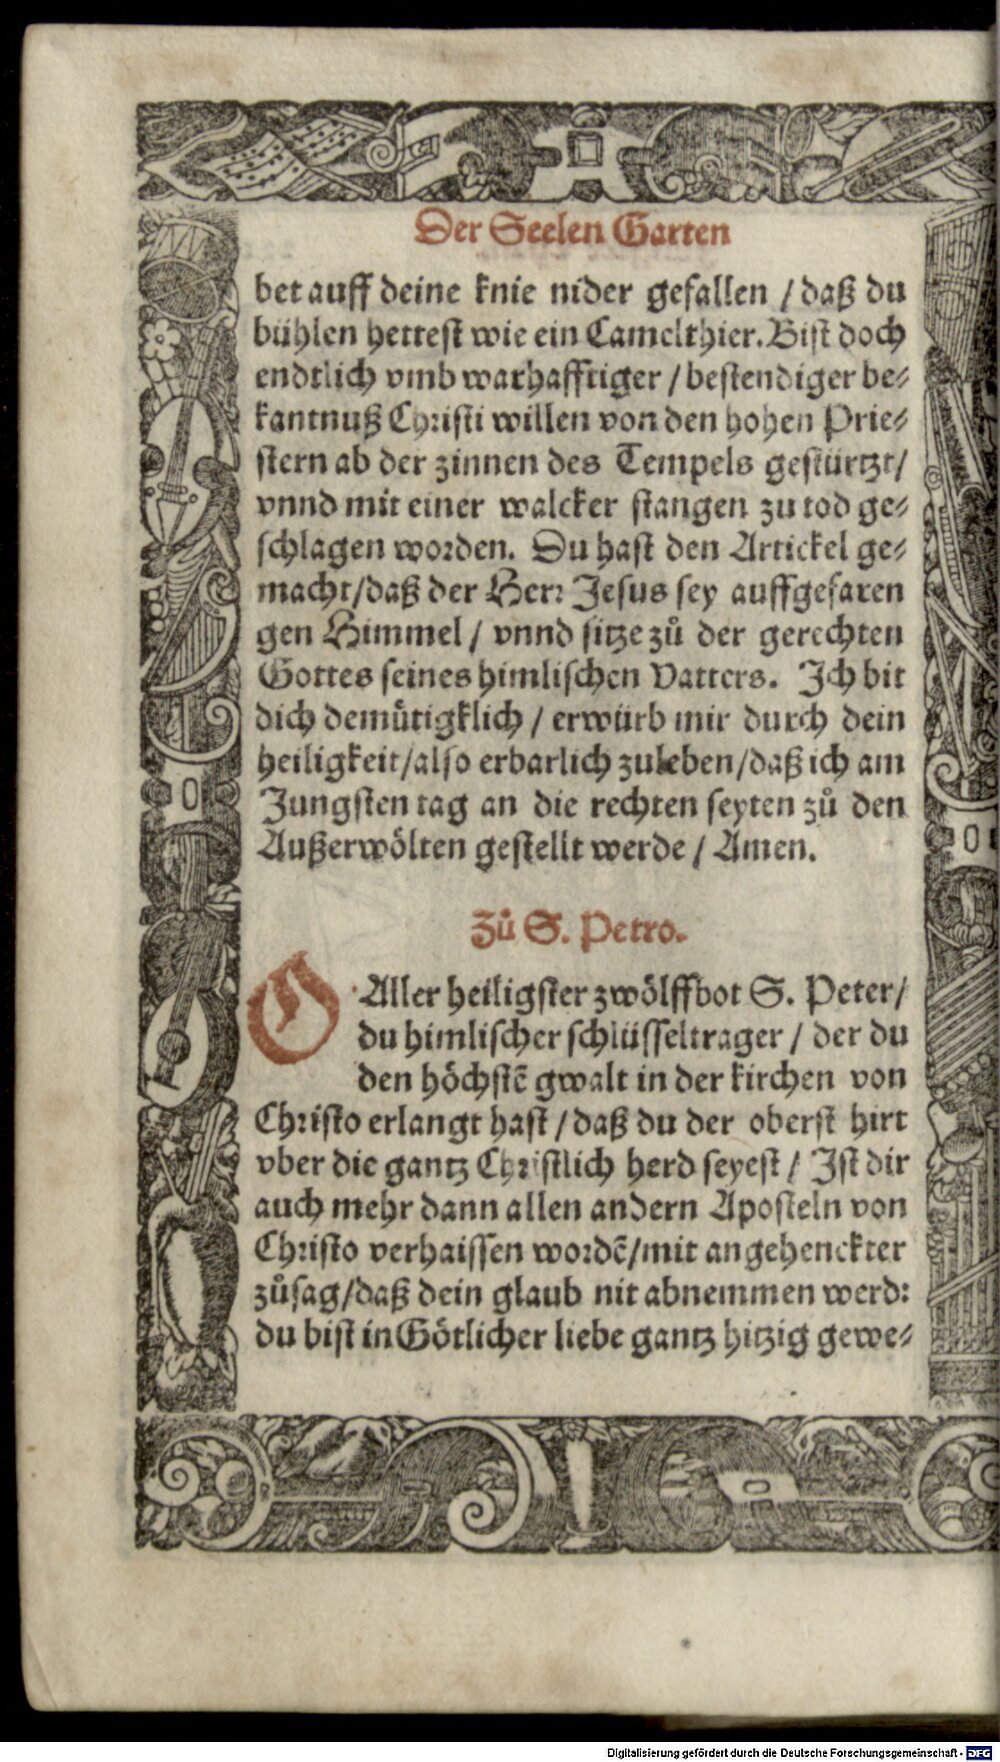 Der Seelen Garten
bet auff deine knie nider gefallen / daß du
bühlen hettest wie ein Camelthier. Bist doch
endtlich vmb warhafftiger / bestendiger be⸗
kantnuß Christi willen von den hohen Prie⸗
stern ab der zinnen des Tempels gestürtzt /
vnnd mit einer walcker stangen zu tod ge⸗
schlagen worden. Du hast den Artickel ge⸗
macht / daß der Herr Jesus sey auffgefaren
gen Himmel / vnnd sitze zů der gerechten
Gottes seines himlischen Vatters. Ich bit
dich demütigklich / erwürb mir durch dein
heiligkeit / also erbarlich zuleben / daß ich am
Jungsten tag an die rechten seyten zů den
Außerwölten gestellt werde / Amen.
Zů S. Petro.
O Aller heiligster zwölffbot S. Peter /
du himlischer schlüsseltrager / der du
den höchstē gwalt in der kirchen von
Christo erlangt hast / daß du der oberst hirt
vber die gantz Christlich herd seyest / Ist dir
auch mehr dann allen andern Aposteln von
Christo verhaissen wordē / mit angehenckter
zůsag / daß dein glaub nit abnemmen werd:
du bist in Götlicher liebe gantz hitzig gewe⸗
Digitalisierung gefördert durch die Deutsche Forschungsgemeinschaft - DFG